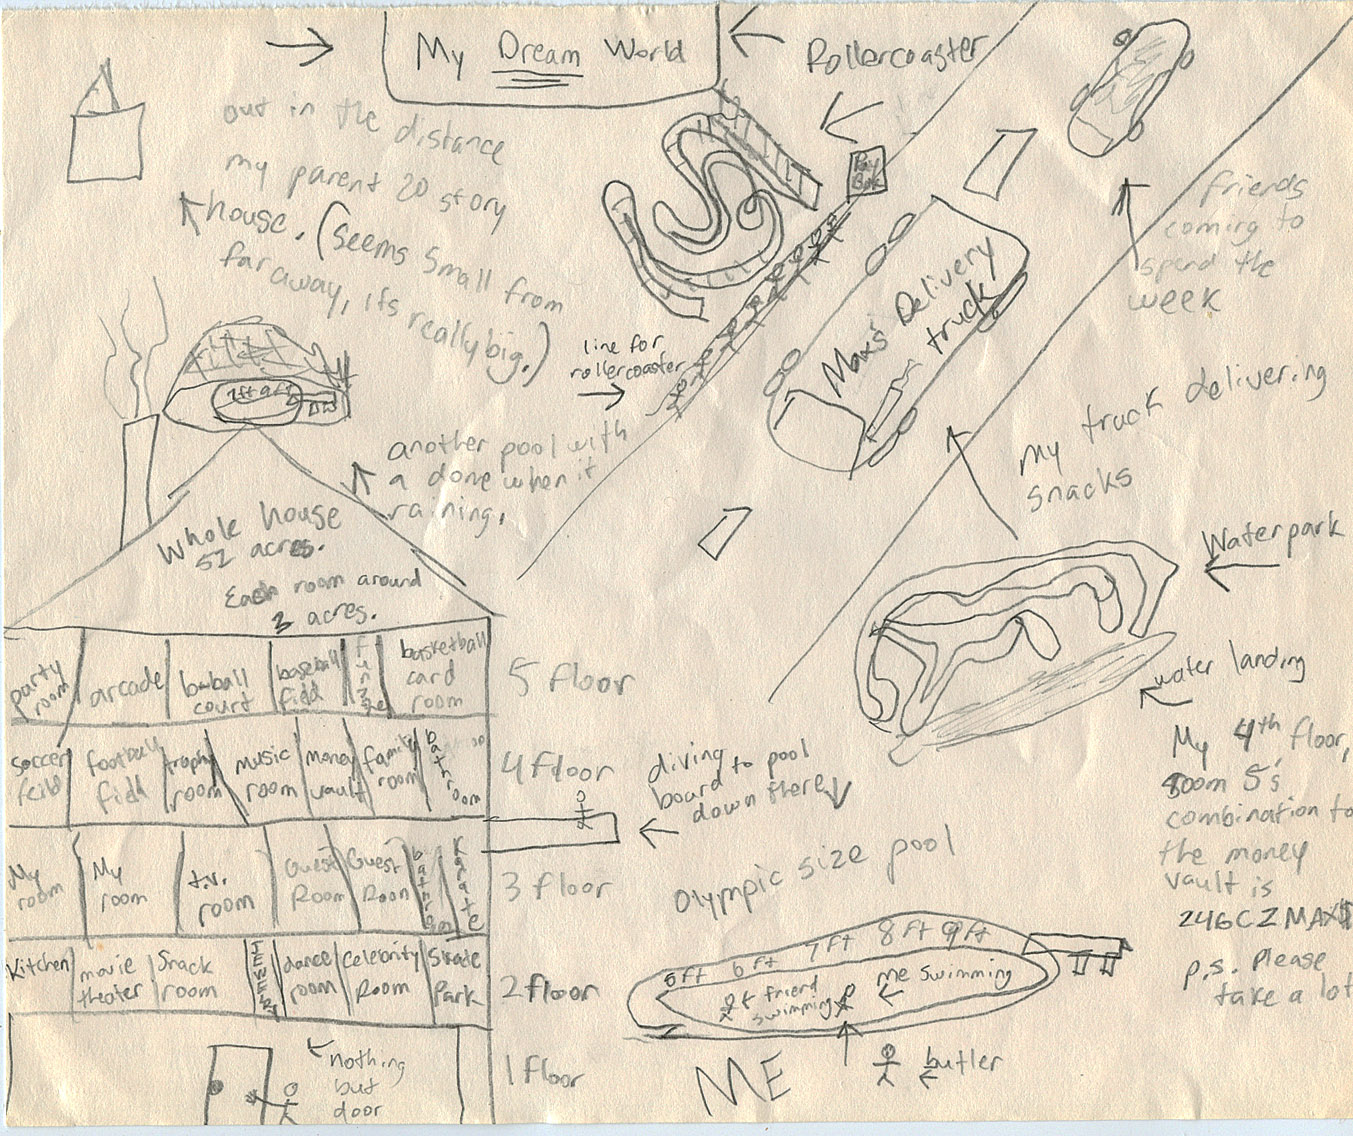 My Dream World
Rollercoaster
out in the distance
my parent 20 story
house. (seems small from
far away, its really big.)
Pay
Box
friends
coming to
spend the
week
Max's Delivery
truck
line for
rollercoaster
my truck delivering
my
snacks
another pool with
a dome when it
raining.
Whole house
52 acres.
Each room around
3 acres.
Waterpark
water landing
party
room
arcade
court
baseball
field
basketball
card
room
5 floor
soccer
feild
football
field
trophy
room
music
room
money
vault
family
room
bathroom
4 floor
diving
board to pool
down there
My 4th floor,
room 5's
combination to
the money
vault is
246CZMAX$
p.s. please
take a lot
My
room
My
room
t.v.
room
Guest
Room
Guest
Room
bathroom
Karate
3 floor
Olympic size pool
5ft 6ft 7ft 8ft 9ft
me swimming
friend
swimming
Kitchen
movie
theater
Snack
room
dance
room
Celebrity
Room
Skate
Park
2 floor
nothing
but
door
1 floor
ME
butler